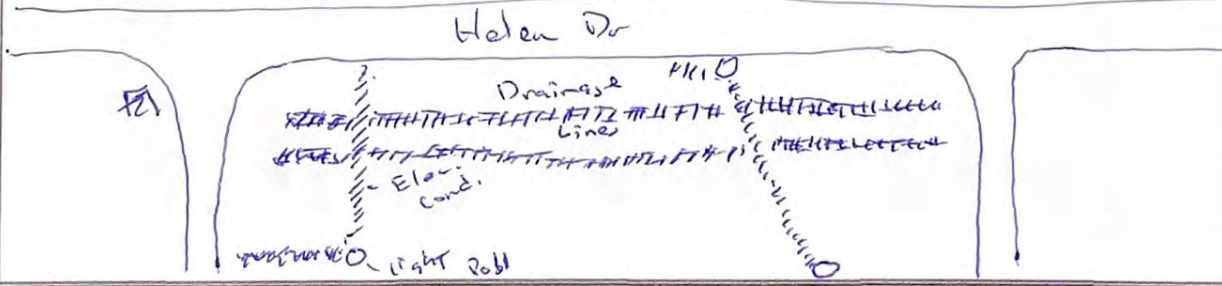 Helen Dr
Drainage
Lines
Elec.
Cond.
Light Pole